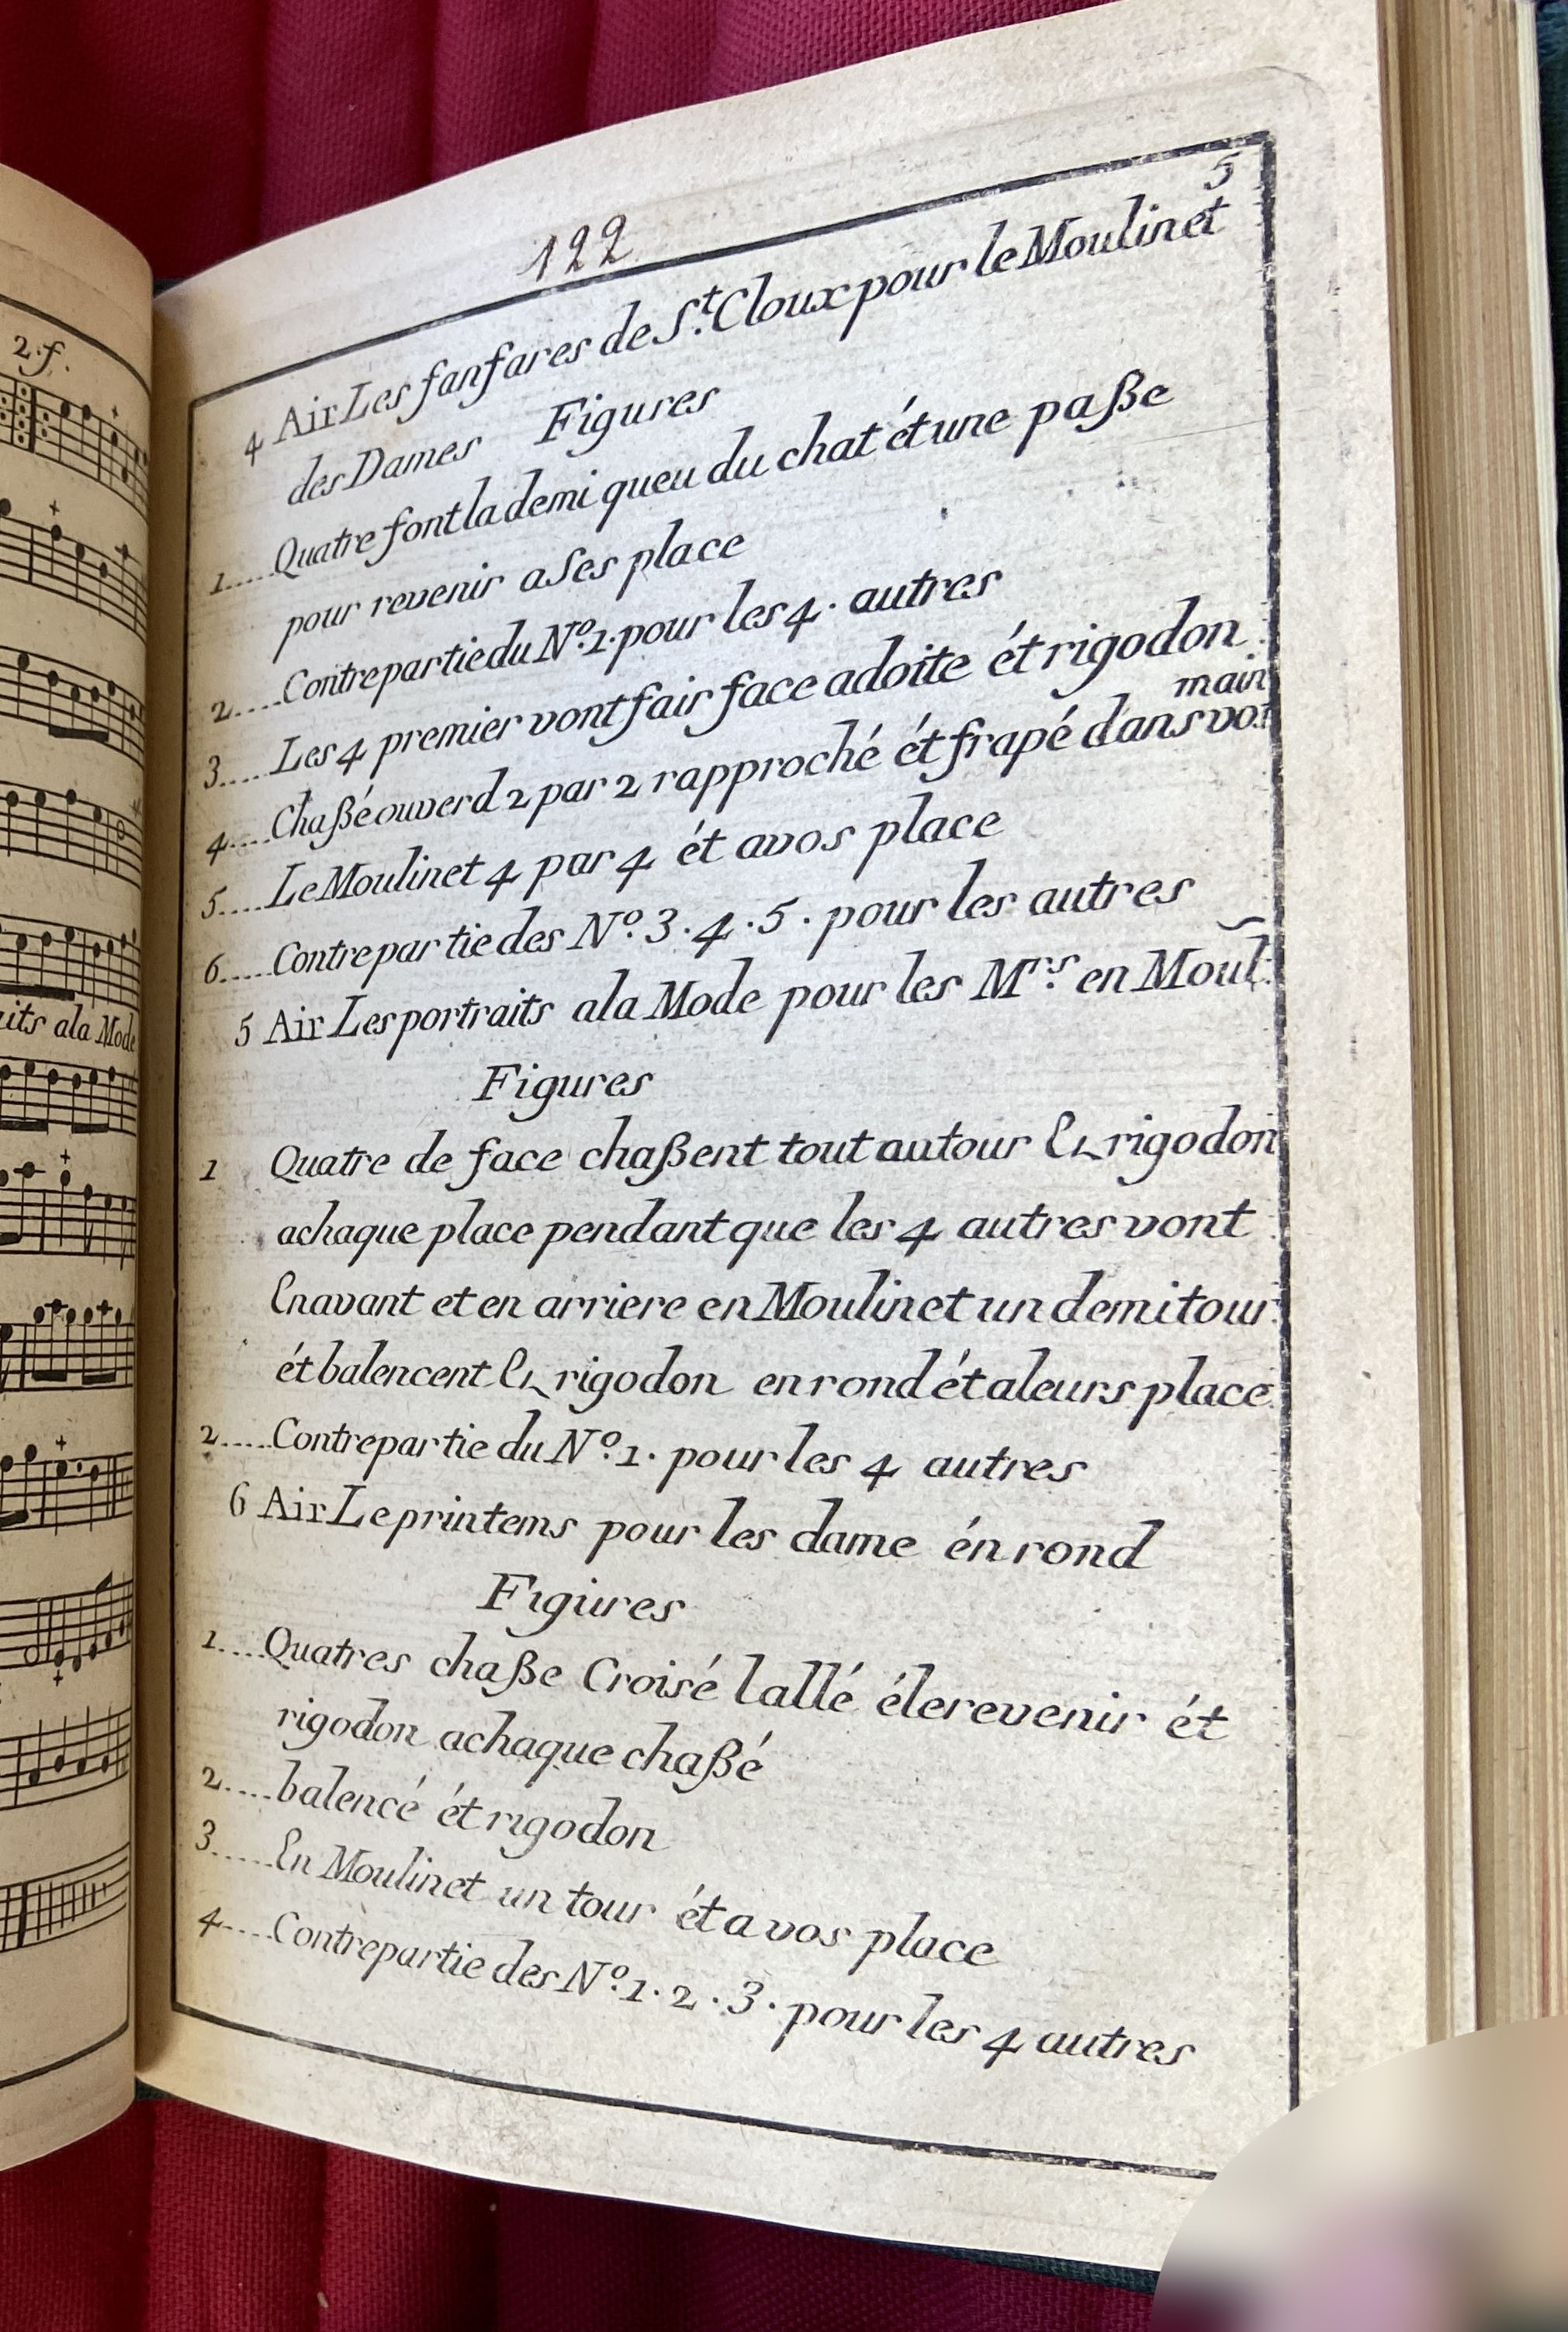 2.f.
its ala Mode
122
5
4 Air Les fanfares de St. Cloux pour le Moulinet
des Dames Figures
1..... Quatre font la demi queu du chat ét une paße
pour revenir a Ses place
2..... Contrepartie du No. 1. pour les 4. autres
3..... Les 4 premier vont fair face adoite ét rigodon
main
4..... Chaßé ouverd 2 par 2 rapproché ét frapé dans vos
5..... Le Moulinet 4 par 4 ét avos place
6..... Contrepartie des No. 3.4.5. pour les autres
5 Air Les portraits ala Mode pour les Mrs. en Moul.
Figures
1 Quatre de face chaßent tout autour Et rigodon
achaque place pendant que les 4 autres vont
En avant et en arriere en Moulinet un demi tour
ét balencent Et rigodon en rond ét aleurs place
2..... Contrepartie du No. 1. pour les 4 autres
6 Air Le printems pour les dame én rond
Figures
1.... Quatres chaße Croisé lallé éle revenir ét
rigodon achaque chaßé
2..... balencé ét rigodon
3..... En Moulinet un tour ét a vos place
4..... Contrepartie des No. 1.2.3. pour les 4 autres